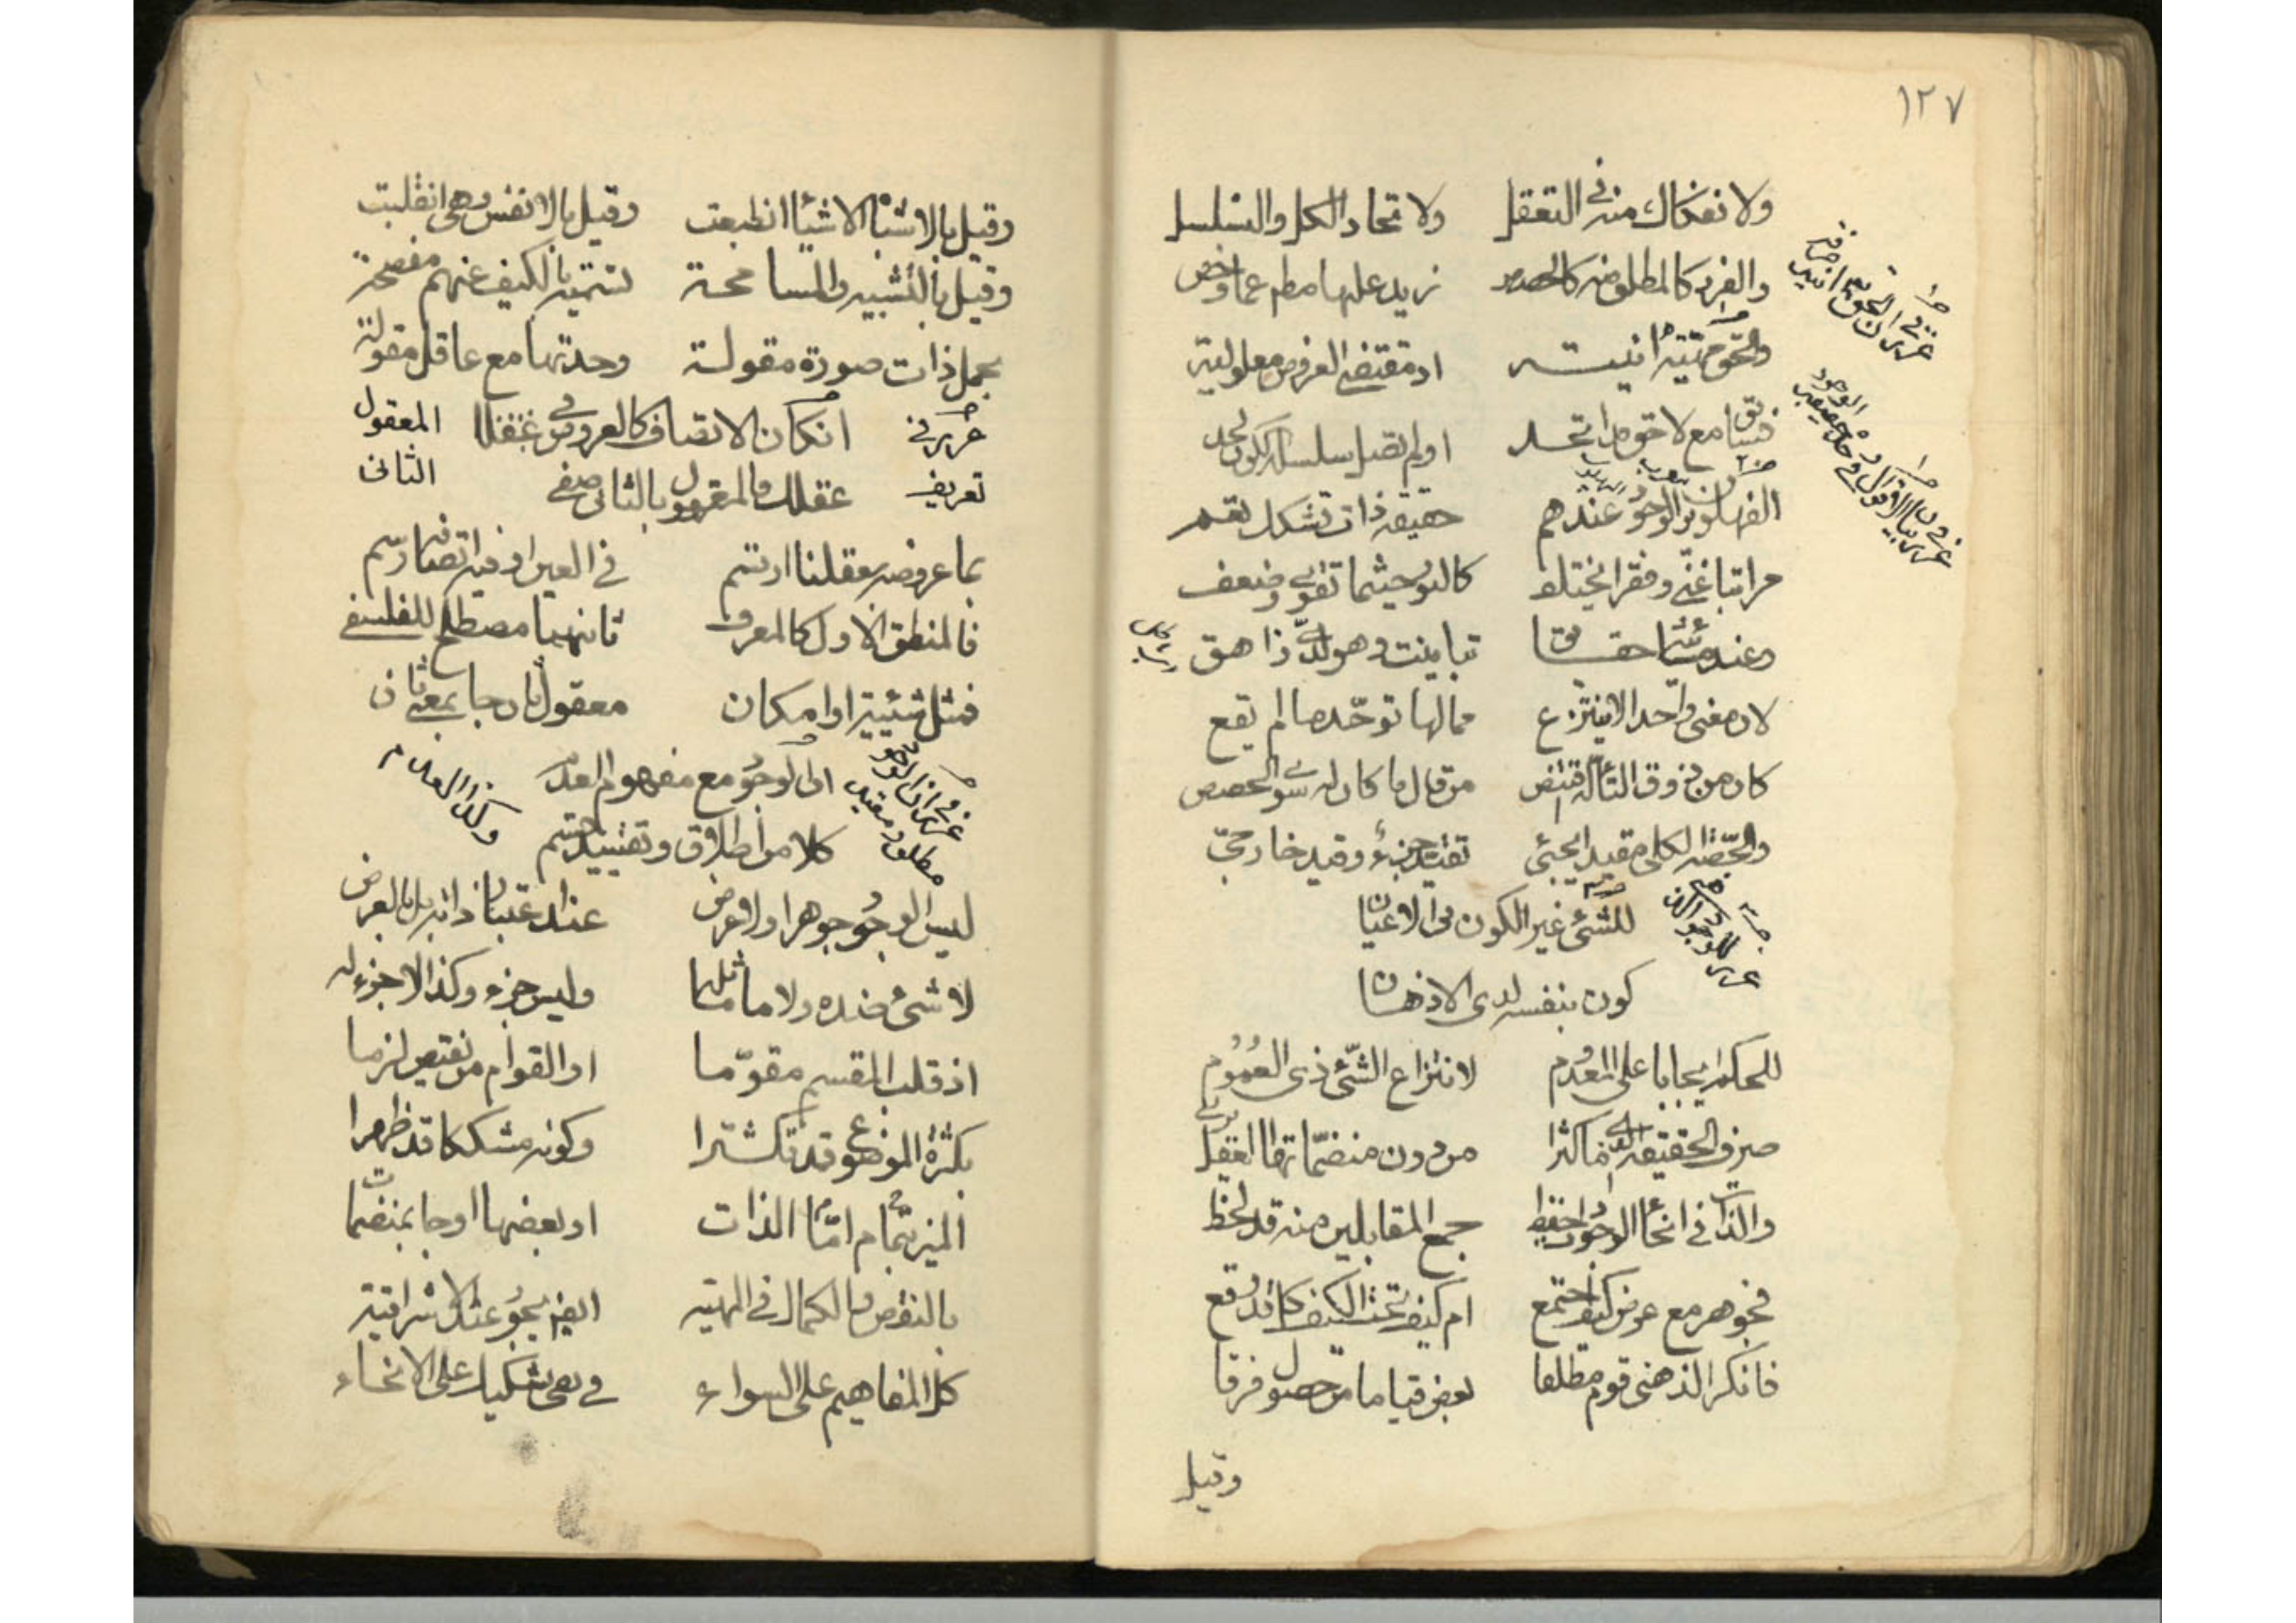 ١٢٧
ولانفكاك منه في التعقل ولاتحاد الكل والتسلسل
والفرد كالمطلق منه كالحصص زيد عليها مطلقا عما وخص
والحق مهيته انيته اذ مقتضى العروض معلوليته
فسابق مع لاحق قد اتحد اولم تصل سلسلة الكون لحد
الفهلويون الوجود عندهم حقيقة ذات تشكك تعم
مراتبا غنى وفقرا تختلف كالنور حيثما تقوى وضعف
وعند مشائية حقايق تباينت وهو لدي زاهق
لان معنى واحدا لا ينتزع مما لها توحد ما لم يقع
كان من ذوق التاله اقتنص من قال ما كان له سوى الحصص
والحصة الكلى مقيدا يجئى تقيد جزء وقيد خارجى
للشئ غير الكون فى الاعيان
كون بنفسه لدى الاذهان
للحكم ايجابا على المعدوم لانتزاع الشئ ذى العموم
صرف الحقيقة الذى ما كثرا من دون منضماتها العقل يرى
والذات فى انحا الوجودات حفظ جمع المقابلين منه قد لحظ
فجوهر مع عرض كيف اجتمع ام كيف تحت الكيف كل قد وقع
فانكر الذهنى قوم مطلقا بعض قياما من حصول فرقا
وقيل
وقيل بالاشباح الاشيا انطبعت وقيل بالانفس وهى انقلبت
وقيل بالتشبيه والمسامحة تسمية بالكيف عنهم مفصحة
بحمل ذات صورة مقولة وحدتها مع عاقل مقولة
غرر في ان كان الاتصاف كالعروض فى عقلك المعقول
تعريف عقلك فالمعقول بالثانى صفى الثانى
بما عروضه بعقلنا ارتسم فى العين او فيه اتصافه رسم
فالمنطقى الاول كالمعرف ثانيهما مصطلح للفلسفى
فمثل شيئية او امكان معقول ثان جا بمعنى ثان
غرر في ان الوجود مطلق ومقيد وكذا العدم
ان الوجود مع مفهوم العدم
كلا من اطلاق وتقييد قسم
ليس الوجود جوهرا ولا عرض عند اعتبار ذاته بل بالعرض
لا شئ ضده ولا ما ماثلها وليس جزء وكذا لا جزء له
اذ قلب المقسم مقوما او القوام من نقيض لزما
بكثرة الموضوع قد تكثرا وكونه مشككا قد ظهرا
الميز اما بتمام الذات او بعضها او جا بمنضمات
بالنقص والكمال فى المهية ايضا يجوز عند الاشراقية
كل المفاهيم على السواء فى نفى تشكيك على الانحاء